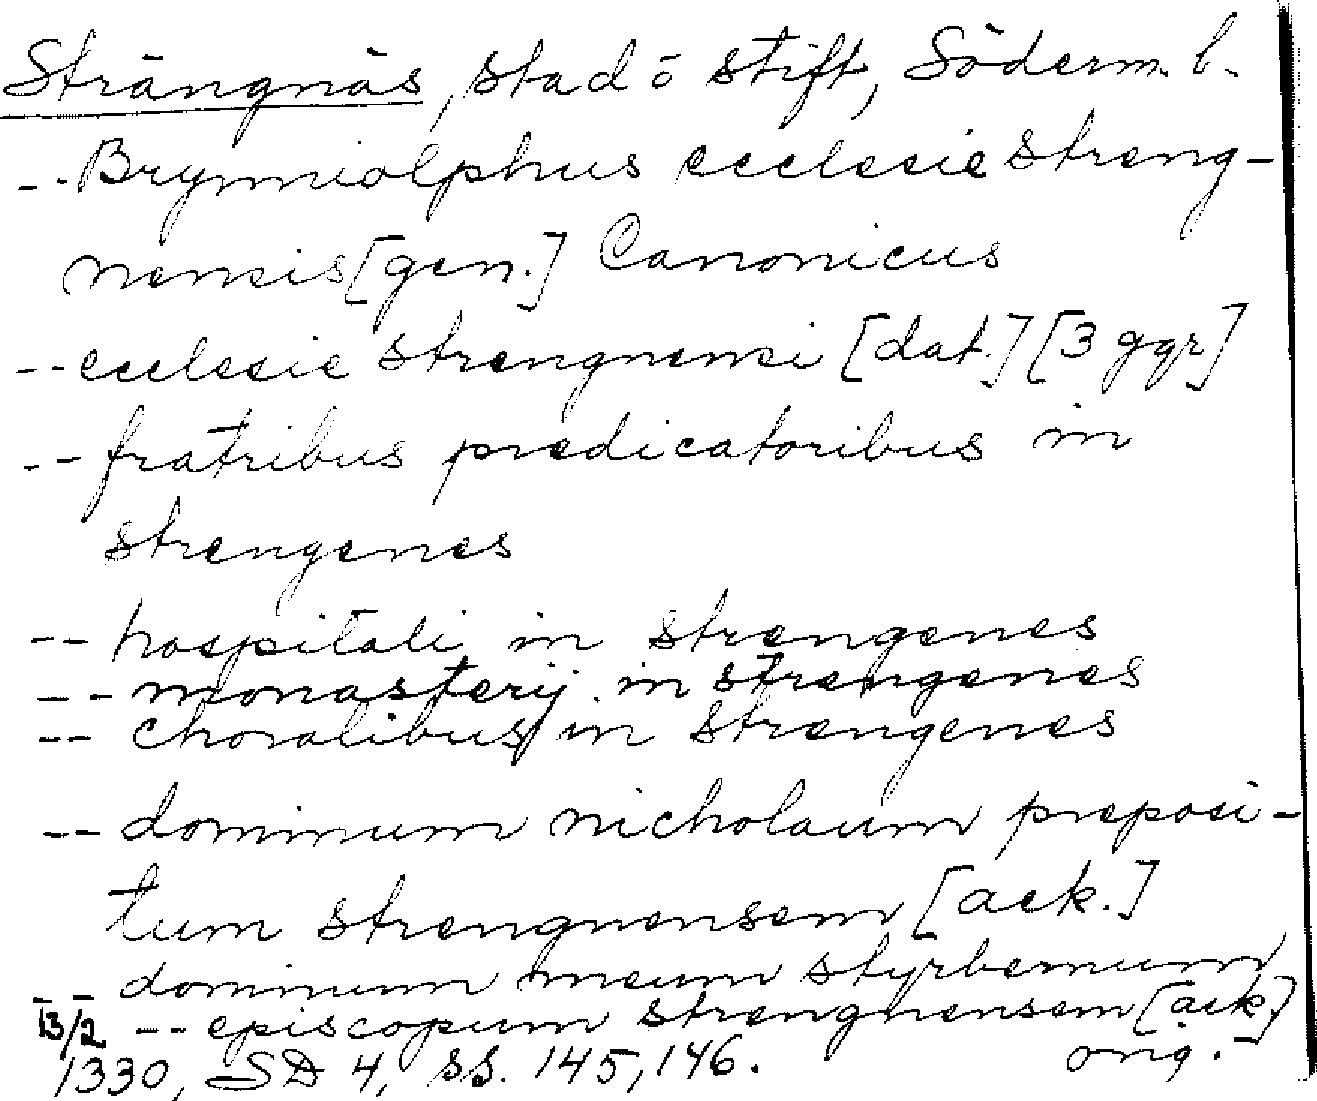 Strängnäs, stad o stift, Söderm. l.
-- Brynniolphus ecclesie streng-
nensis [gen.] Canonicus
-- ecclesie strengnensi [dat.] [3 ggr]
-- fratribus predicatoribus in
strengenes
-- hospitali in strengenes
-- monasterij in strengenes
-- choralibus in strengenes
-- dominum nicholaum preposi-
tum strengnensem [ack.]
dominum meum styrbernum
-- episcopum strengnensem [ack.]
13/2 1330, SD 4, ss. 145, 146. orig.